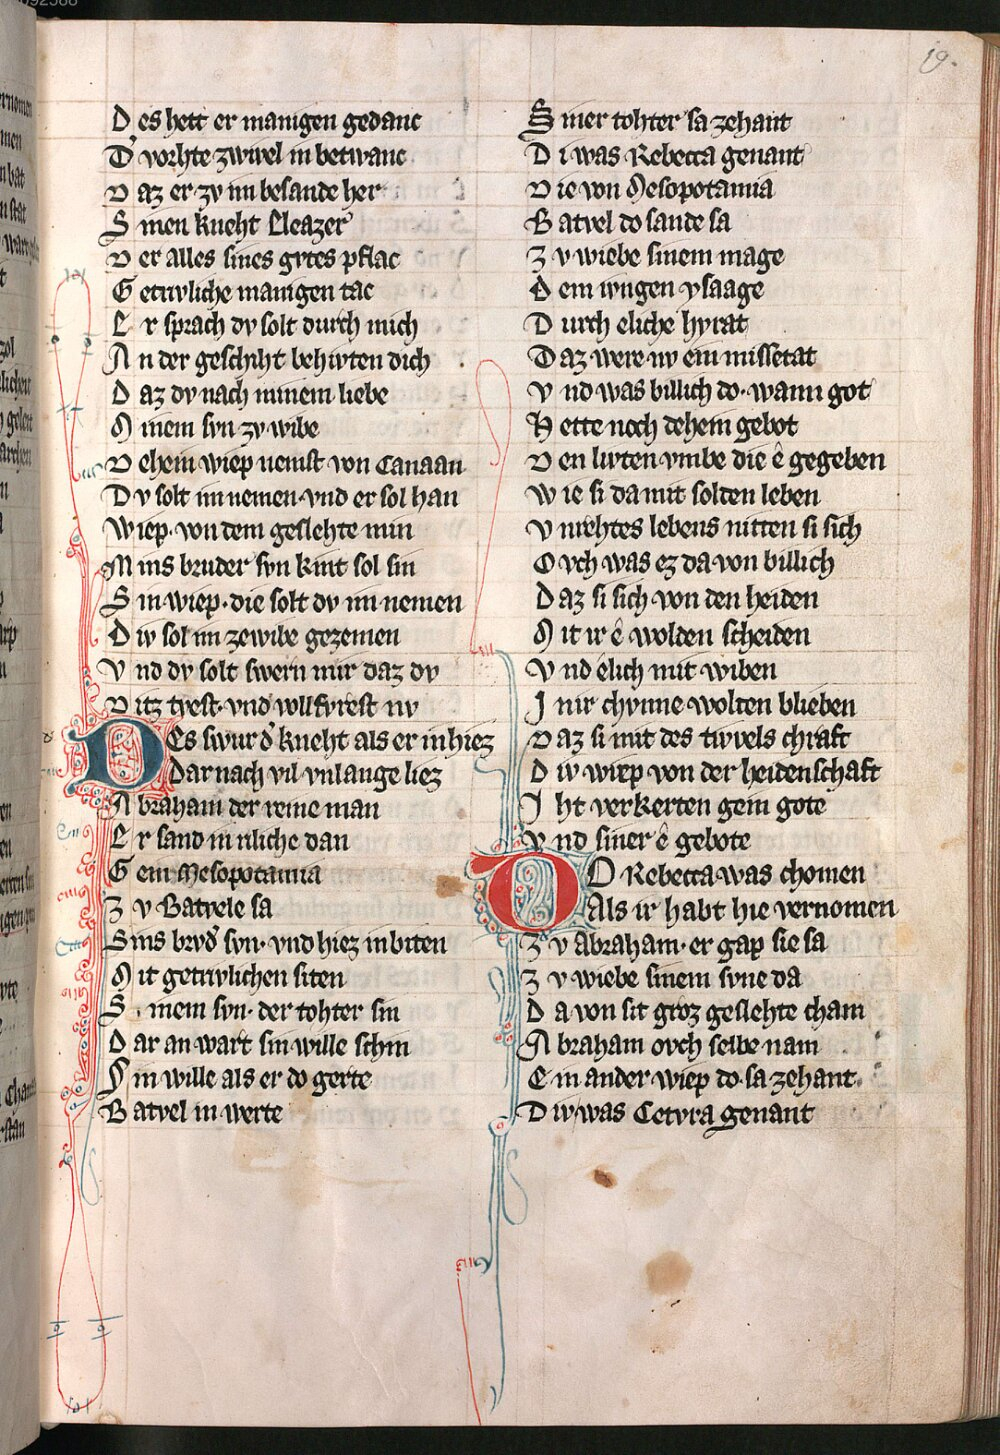 19.
Des hett er manigen gedanc
Dˢ vorhte zwivel in betwanc
Daz er zv im besande her
Sinen kneht Eleazer
Der alles sines gvtes pflac
Getrivliche manigen tac
Er sprach dv solt durch mich
An der geschiht behivten dich
Daz dv nach minem liebe
Minem svn zv wibe
Dehein wiep nemst von Canaan
Dv solt im nemen vnd er sol han
Wiep von dem geslehte min
Mins bruder svn kint sol sin
Sin wiep. die solt dv im nemen
Div sol im zewibe gezemen
Vnd dv solt swern mir daz dv
Ditz trest. vnd vollfvrest nv
Des swur dˢ kneht als er in hiez
Dar nach vil vnlange liez
Abraham der reine man
Er sand in nliche dan
Gein Mesopotamia
Zv Batvele sa
Sins brvdˢ svn. vnd hiez in biten
Mit getrivlichen siten
Sinem svn. der tohter sin
Dar an wart sin wille schin
Sin wille als er do gerte
Batvel in werte
Siner tohter sa zehant
Di was Rebecca genant
Die von Mesopotamia
Batvel do sande sa
Zv wiebe sinem mage
Dem ivngen ysaage
Durch eliche hyrat
Daz were nv ein missetat
Vnd was billich do. wann got
Hette noch dehein gebot
Den livten vmbe die ê gegeben
Wie si da mit solden leben
Vnrehtes lebens nitten si sich
Ovch was ez da von billich
Daz si sich von den heiden
Mit ir ê wolden scheiden
Vnd êlich mit wiben
In ir chvnne wolten blieben
Daz si mit des tivvels chraft
Div wiep von der heidenschaft
Iht verkerten gein gote
Vnd siner ê gebote
Do Rebecca was chomen
Als ir habt hie vernomen
Zv Abraham. er gap sie sa
Zv wiebe sinem svne da
Da von sit groz geslehte cham
Abraham ovch selbe nam
Ein ander wiep do sa zehant.
Div was Cetvra genant